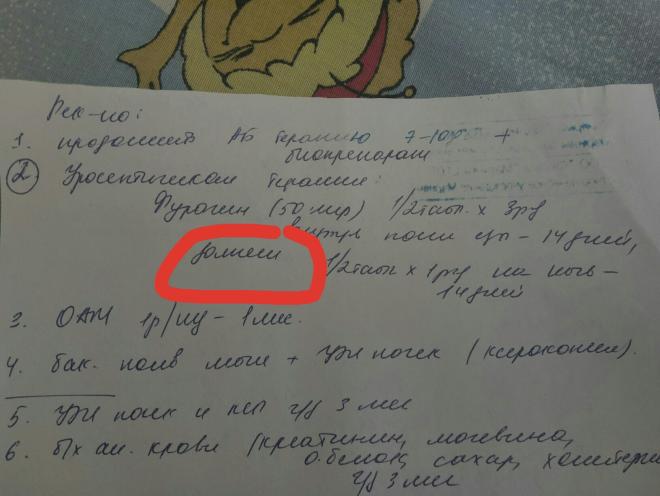 Рек-но:
1. продолжить АБ терапию 7-10дн +
биопрепарат
2 Уросептическая терапия:
Фурагин (50 мг) 1/2табл. x 3р/д
внутрь после еды - 14 дней,
затем 1/2табл x 1р/д на ночь -
14 дней
3. ОАМ 1р/нд - 1 мес.
4. бак. посев мочи + УЗИ почек (ксерокопии).
5. УЗИ почек и мп ч/з 3 мес
6. б/х ан. крови (креатинин, мочевина,
о.белок, сахар, холестерин
ч/з 3 мес